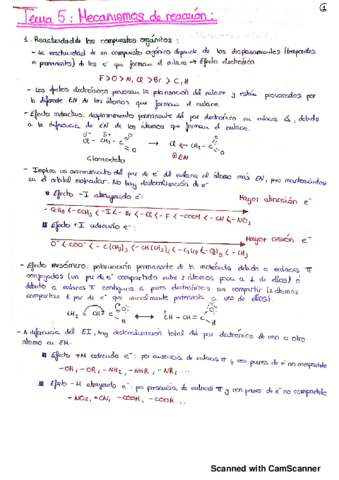 ①
Tema 5: Mecanismos de reacción:
1. Reactividad de los compuestos orgánicos:
- La reactividad de un compuesto orgánico depende de los desplazamientos (temporales
o permanentes) de los e⁻ que forman el enlace → Efecto electrónico
F > O > N, Cl > Br > C, H
- Los efectos electrónicos provocan la polarización del enlace y están provocados por
la diferente EN de los átomos que forman el enlace.
- Efecto inductivo: desplazamiento permanente del par electrónico en enlaces σ, debido
a la diferencia de EN de los átomos que forman el enlace.
Clorometilo
⊕EN
- Implica un acercamiento del par de e⁻ del enlace al átomo más EN, pero manteniéndose
en el orbital molecular. No hay deslocalización de e⁻
■ Efecto -I atrayendo e⁻:
Mayor atracción e⁻
-C₆H₅ < -OCH₃ < -I < -Br < -Cl < -F < -COOH < -CN < -NO₂
■ Efecto +I cediendo e⁻:
Mayor cesión e⁻
O⁻ < COO⁻ < -C(CH₃)₃ < -CH(CH₃)₂ < -C₃H₇ < -C₂H₅ < -CH₃
- Efecto mesómero: polarización permanente de la molécula debido a enlaces π
conjugados (un par de e⁻ compartido entre 2 átomos pasa a 1 de ellos) o
debido a enlaces π contiguos a pares electrónicos sin compartir (2 átomos
comparten 1 par de e⁻ que inicialmente pertenecía a uno de ellos).
- A diferencia del EI, hay deslocalización total del par electrónico de uno a otro
átomo en EM.
■ Efecto +M cediendo e⁻: por ausencia de enlaces π y con pares de e⁻ no compartido
-OH, -OR, -NH₂, -NHR, -NR₂ ...
■ Efecto -M atrayendo e⁻: por presencia de enlaces π y con pares de e⁻ no compartido
- NO₂, -CN, -COOH, -COOR ...
Scanned with CamScanner